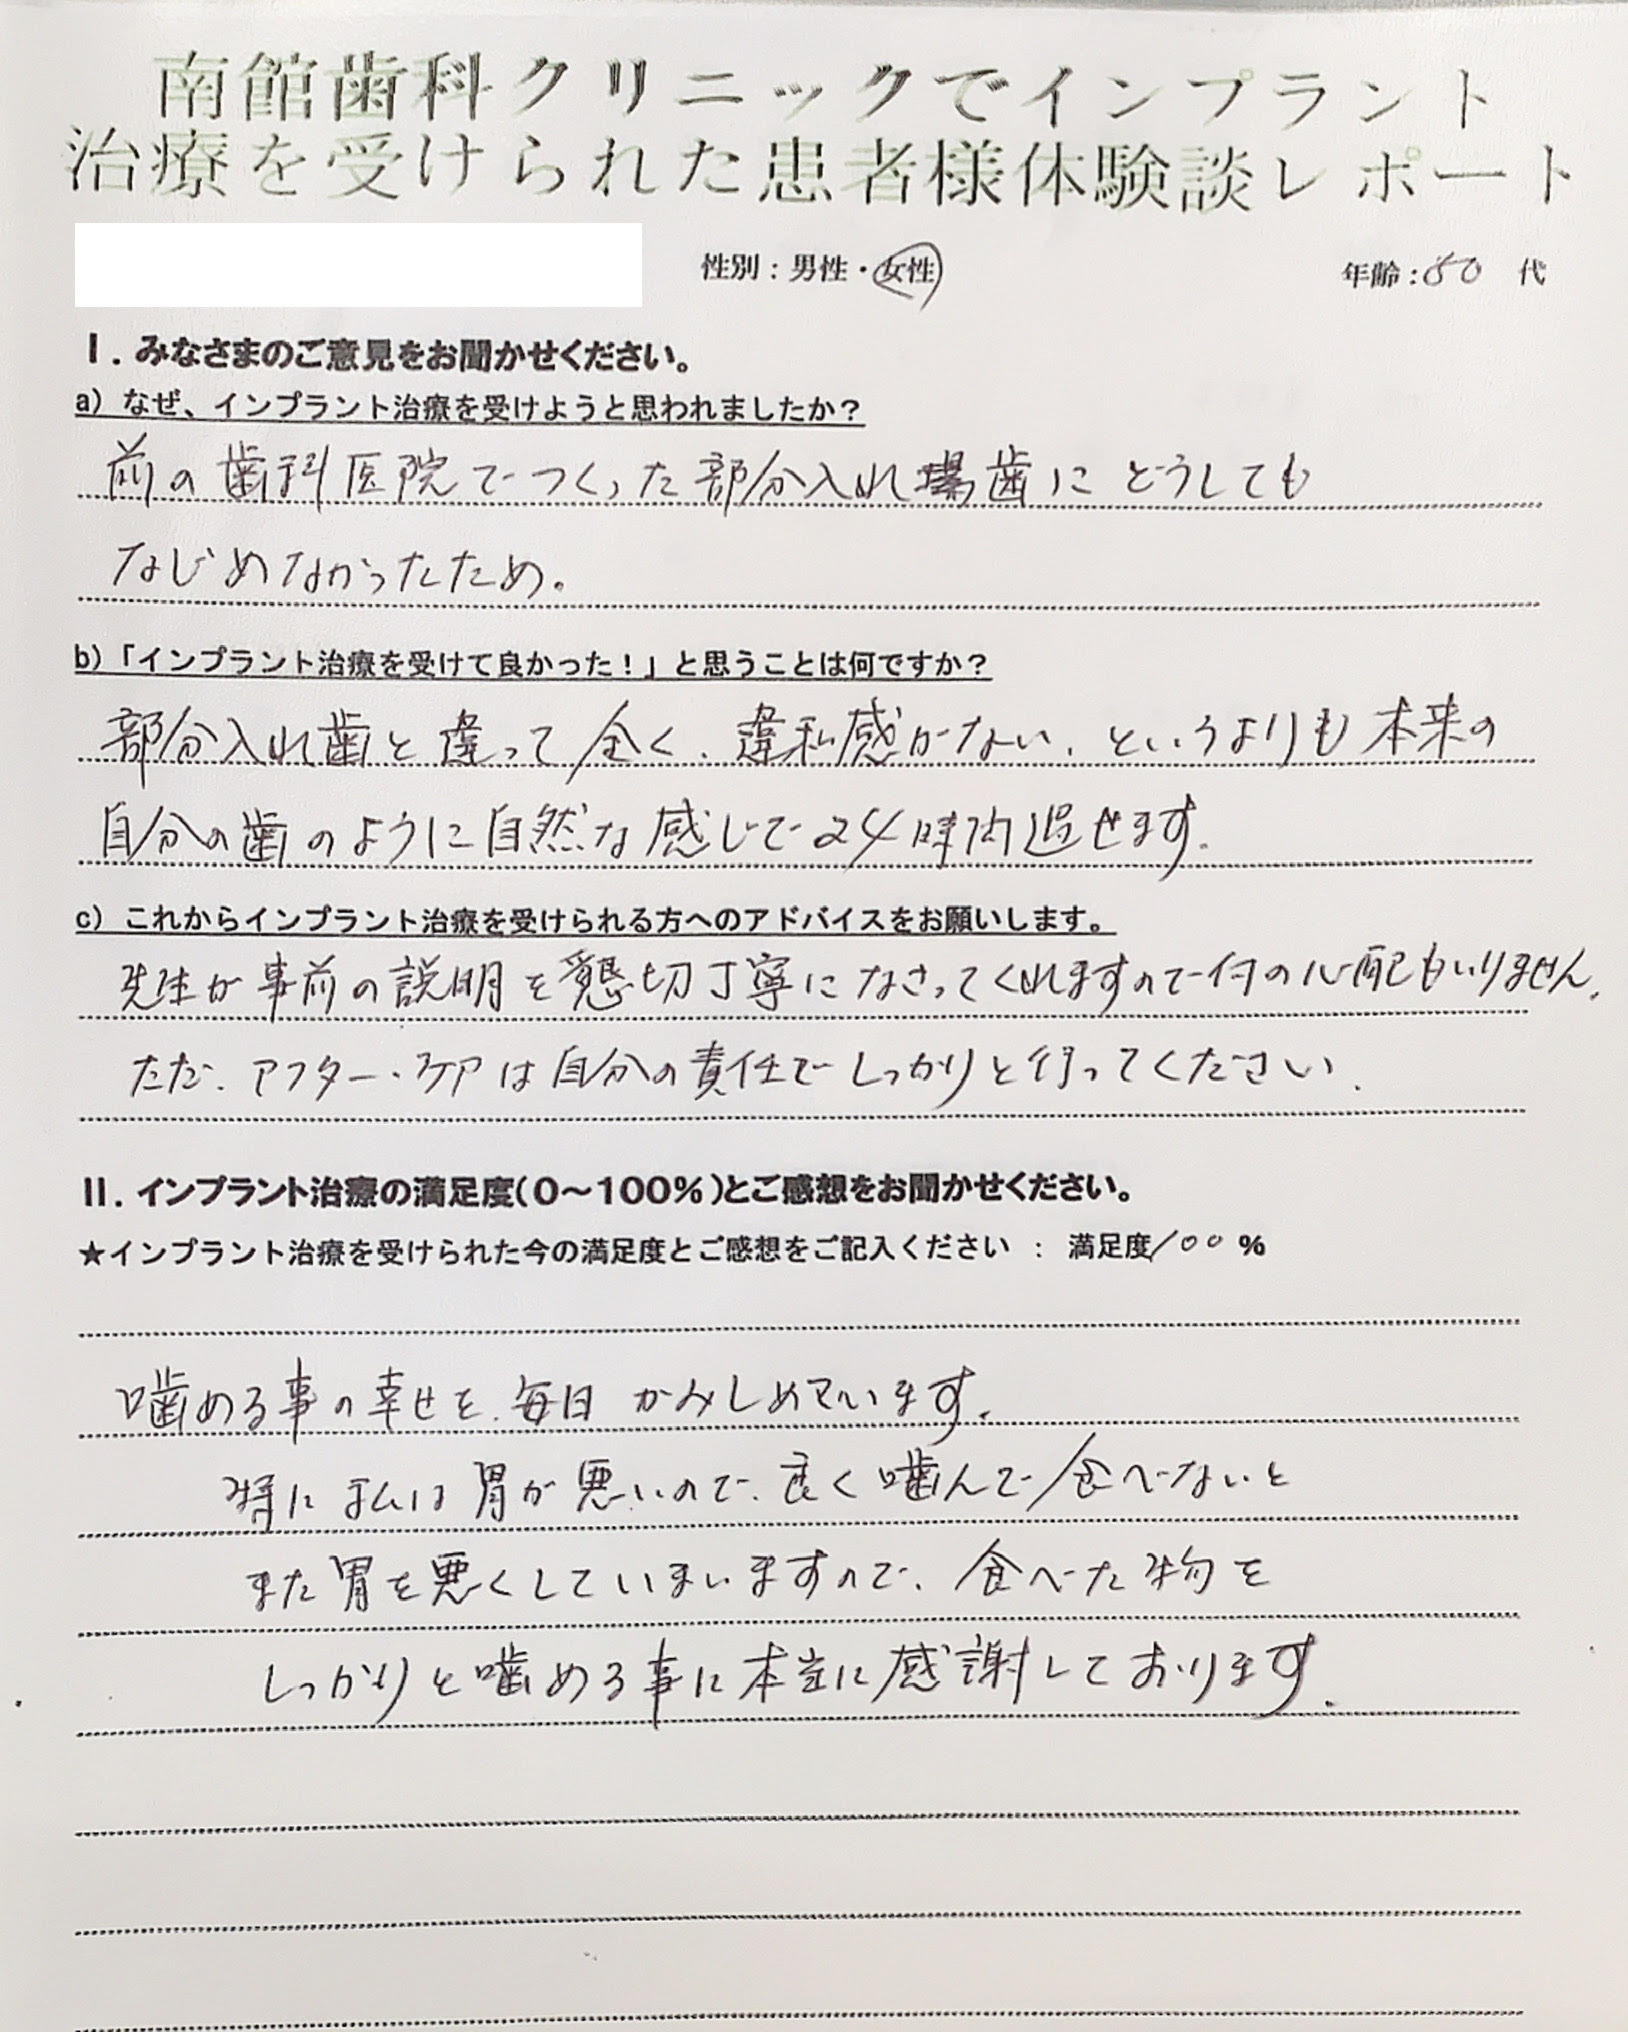 南館歯科クリニックでインプラント
治療を受けられた患者様体験談レポート
性別：男性・女性 年齢：50 代
I．みなさまのご意見をお聞かせください。
a）なぜ、インプラント治療を受けようと思われましたか？
前の歯科医院でつくった部分入れ歯にどうしても
なじめなかったため。
b）「インプラント治療を受けて良かった！」と思うことは何ですか？
部分入れ歯と違って全く、違和感がない、というよりも本来の
自分の歯のように自然な感じで24時間過せます。
c）これからインプラント治療を受けられる方へのアドバイスをお願いします。
先生が事前の説明を懇切丁寧になさってくれますので何の心配もいりません。
ただ、アフター・ケアは自分の責任でしっかりと行ってください。
II．インプラント治療の満足度（0～100%）とご感想をお聞かせください。
★インプラント治療を受けられた今の満足度とご感想をご記入ください ： 満足度100%
噛める事の幸せを、毎日かみしめています。
特に私は胃が悪いので、良く噛んで食べないと
また胃を悪くしてしまいますので、食べた物を
しっかりと噛める事に本当に感謝しております。